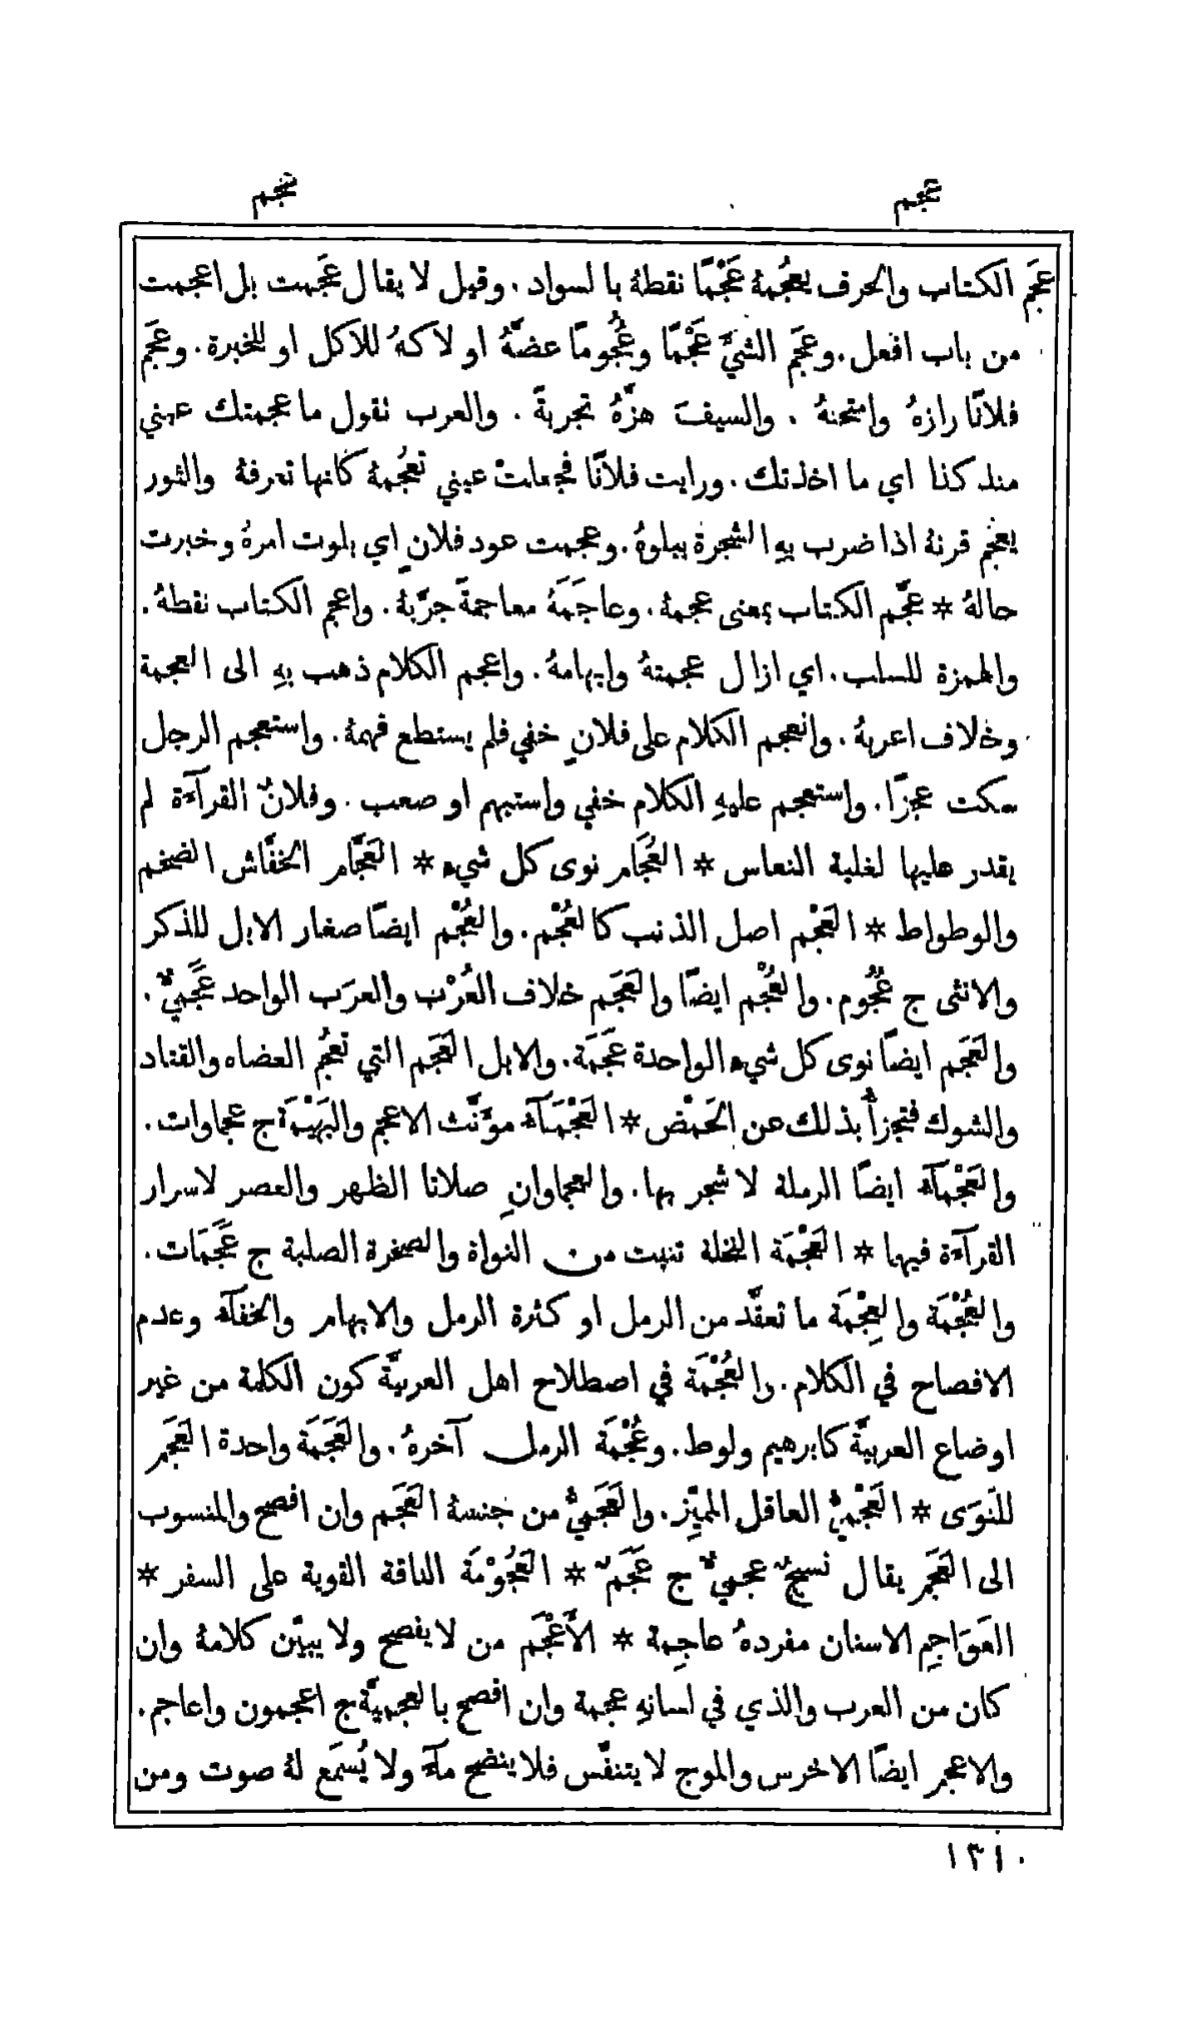 عجم
عجم
عَجَمَ الكتاب والحرف يعجُمهُ عَجْمًا نقطهُ بالسواد. وقيل لا يقال عَجَمت بل اعجمت
من باب افعل. وعجَم الشيَّ عَجْمًا وعُجُومًا عضَّهُ او لاكهُ للاكل او للخبرة. وعجَم
فلانًا رازهُ وامتحنهُ . والسيفَ هزَّهُ تجربةً . والعرب تقول ما عجمتك عيني
منذ كذا اي ما اخذتك. ورايت فلانًا فجعلتْ عيني تعجُمهُ كانها تعرفهُ والثور
يعجُم قرنهُ اذا ضرب بهِ الشجرة يبلوهُ. وعجمت عود فلانٍ اي بلوت امرهُ وخبرت
حالهُ * عجَّم الكتاب بمعنى عجمهُ. وعاجَمَهُ معاجمةً جرَّبهُ. واعجم الكتاب نقطهُ.
والهمزة للسلب. اي ازال عجمتهُ وابهامهُ. واعجم الكلام ذهب بهِ الى العجمة
وخلاف اعربهُ. وانعجم الكلام على فلانٍ خفي فلم يستطع فهمهُ. واستعجم الرجل
سكت عجزًا. واستعجم عليهِ الكلام خفي واستبهم او صعب. وفلانٌ القرآءة لم
يقدر عليها لغلبة النعاس * العُجَام نوى كل شيء * العَجَّام الخفَّاش الضخم
والوطواط * العَجْم اصل الذنب كالعُجْم. والعُجْم ايضًا صغار الابل للذكر
والانثى ج عُجُوم. والعُجْم ايضًا والعَجَم خلاف العُرْب والعرَب الواحد عَجَميٌّ.
والعَجَم ايضًا نوى كل شيء الواحدة عَجَمَة. والابل العَجَم التي تعجُمُ العضاه والقتاد
والشوك فتجزأُ بذلك عن الحَمْض * العَجْمَآءُ مؤَنَّث الاعجم والبَهِيْمَة ج عجماوات.
والعَجْمَآءُ ايضًا الرملة لا شجر بها. والعجماوانِ صلاتا الظهر والعصر لاسرار
القرآءة فيهما * العَجْمَة النخلة تنبت من النواة والصخرة الصلبة ج عَجَمَات.
والعُجْمَة والعِجْمَة ما تعقَّد من الرمل او كثرة الرمل والابهام والخفآءُ وعدم
الافصاح في الكلام. والعُجْمَة في اصطلاح اهل العربيَّة كون الكلمة من غير
اوضاع العربيَّة كابرهيم ولوط. وعُجْمَة الرمل آخرهُ. والعَجَمَة واحدة العَجَم
للنَوَى * العَجْمِيُّ العاقل المميِّز. والعَجَمِيُّ من جنسهُ العَجَم وان افصح والمنسوب
الى العَجَم يقال نسيجٌ عجميٌّ ج عَجَمٌ * العَجُوْمَة الناقة القوية على السفر *
العَوَاجِم الاسنان مفردهُ عاجِمة * الأَعْجَم من لا يفصح ولا يبيّن كلامهُ وان
كان من العرب والذي في لسانهِ عجمة وان افصح بالعجميَّة ج اعجمون واعاجم.
والاعجم ايضًا الاخرس والموج لا يتنفَّس فلا ينضح مآءً ولا يُسمَع لهُ صوت ومن
١٣١٠